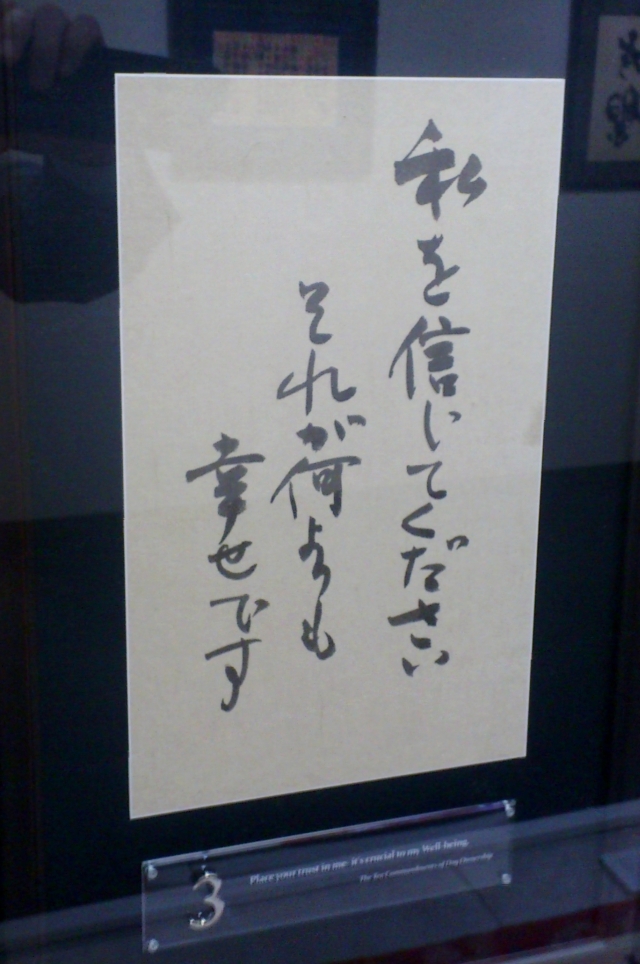 私を信じてください
それが何よりも
幸せです
3
Place your trust in me- it's crucial to my Well-being.
The Ten Commandments of Dog Ownership